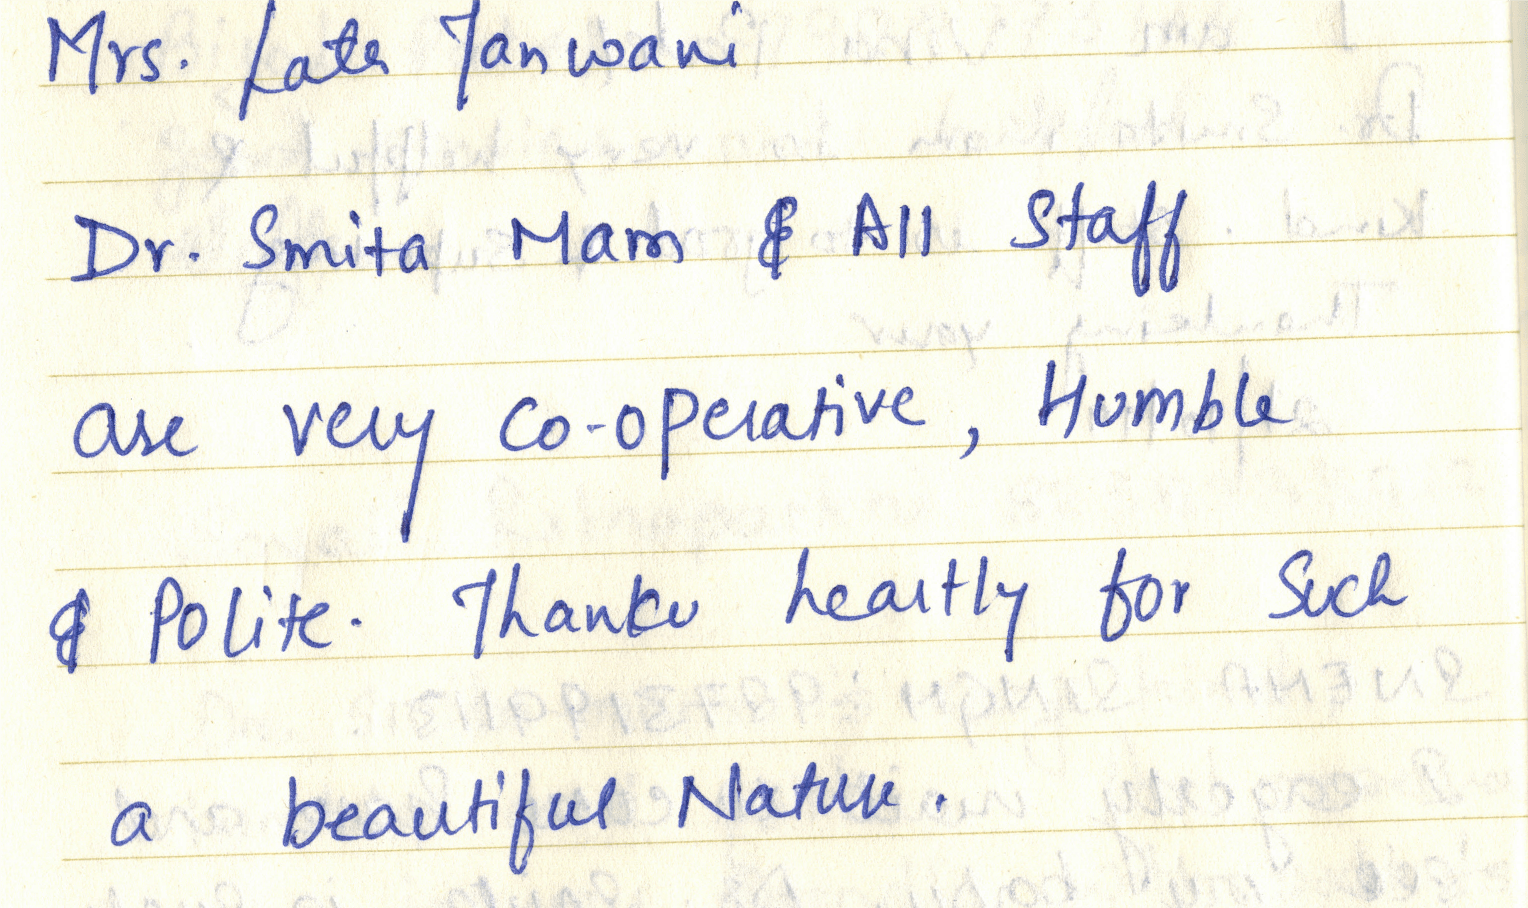 Mrs. Lata Janwani
Dr. Smita Mam & All Staff
are very Co-operative, Humble
& Polite. Thanku heartly for Such
a beautiful Nature.